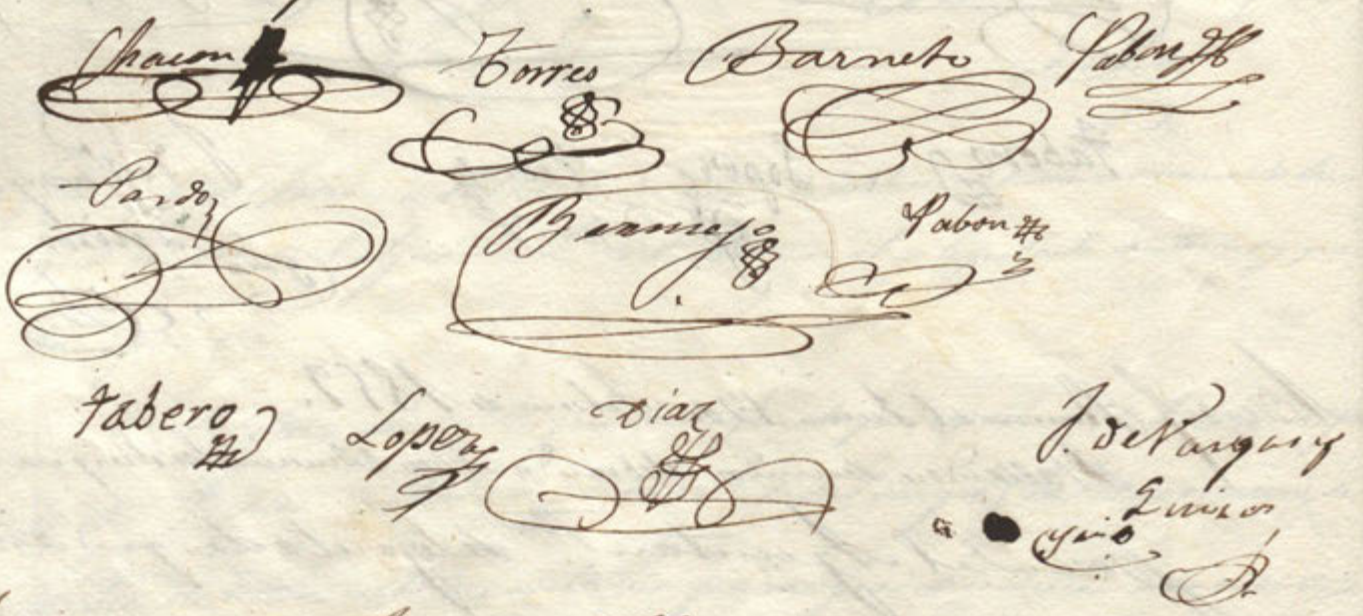 Chacon Torres Barneto Pabon
Pardo Bermejo Pabon
Tabero Lopez Diaz J. de Vargas y